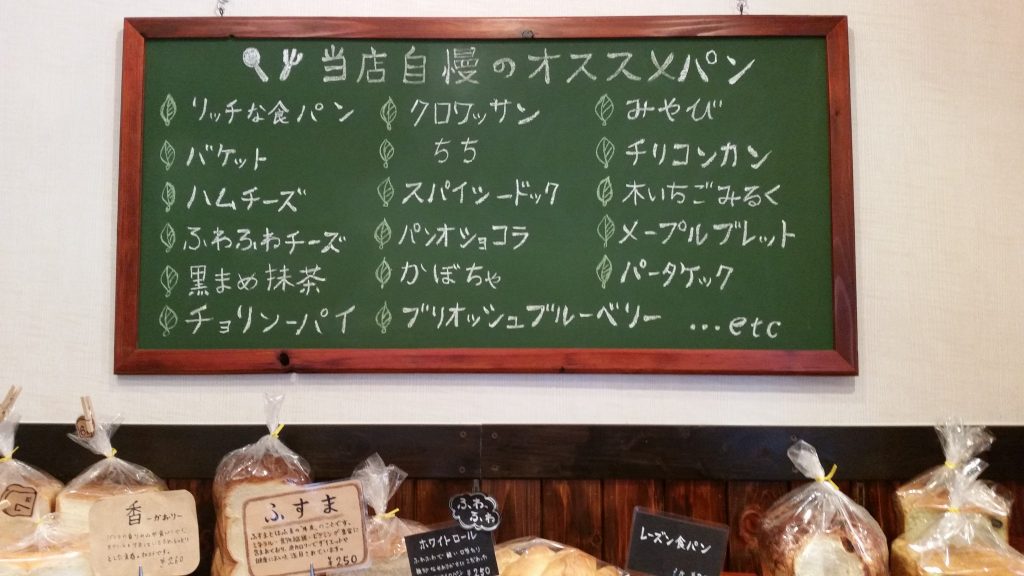 当店自慢のオススメパン
リッチな食パン
バケット
ハムチーズ
ふわふわチーズ
黒まめ抹茶
チョリソーパイ
クロワッサン
ちち
スパイシードック
パンオショコラ
かぼちゃ
ブリオッシュブルーベリー
みやび
チリコンカン
木いちごみるく
メープルブレット
パータケック
...etc
香 -かおり-
¥260
ふすま
¥250
ふわふわ
ホワイトロール
¥250
レーズン食パン